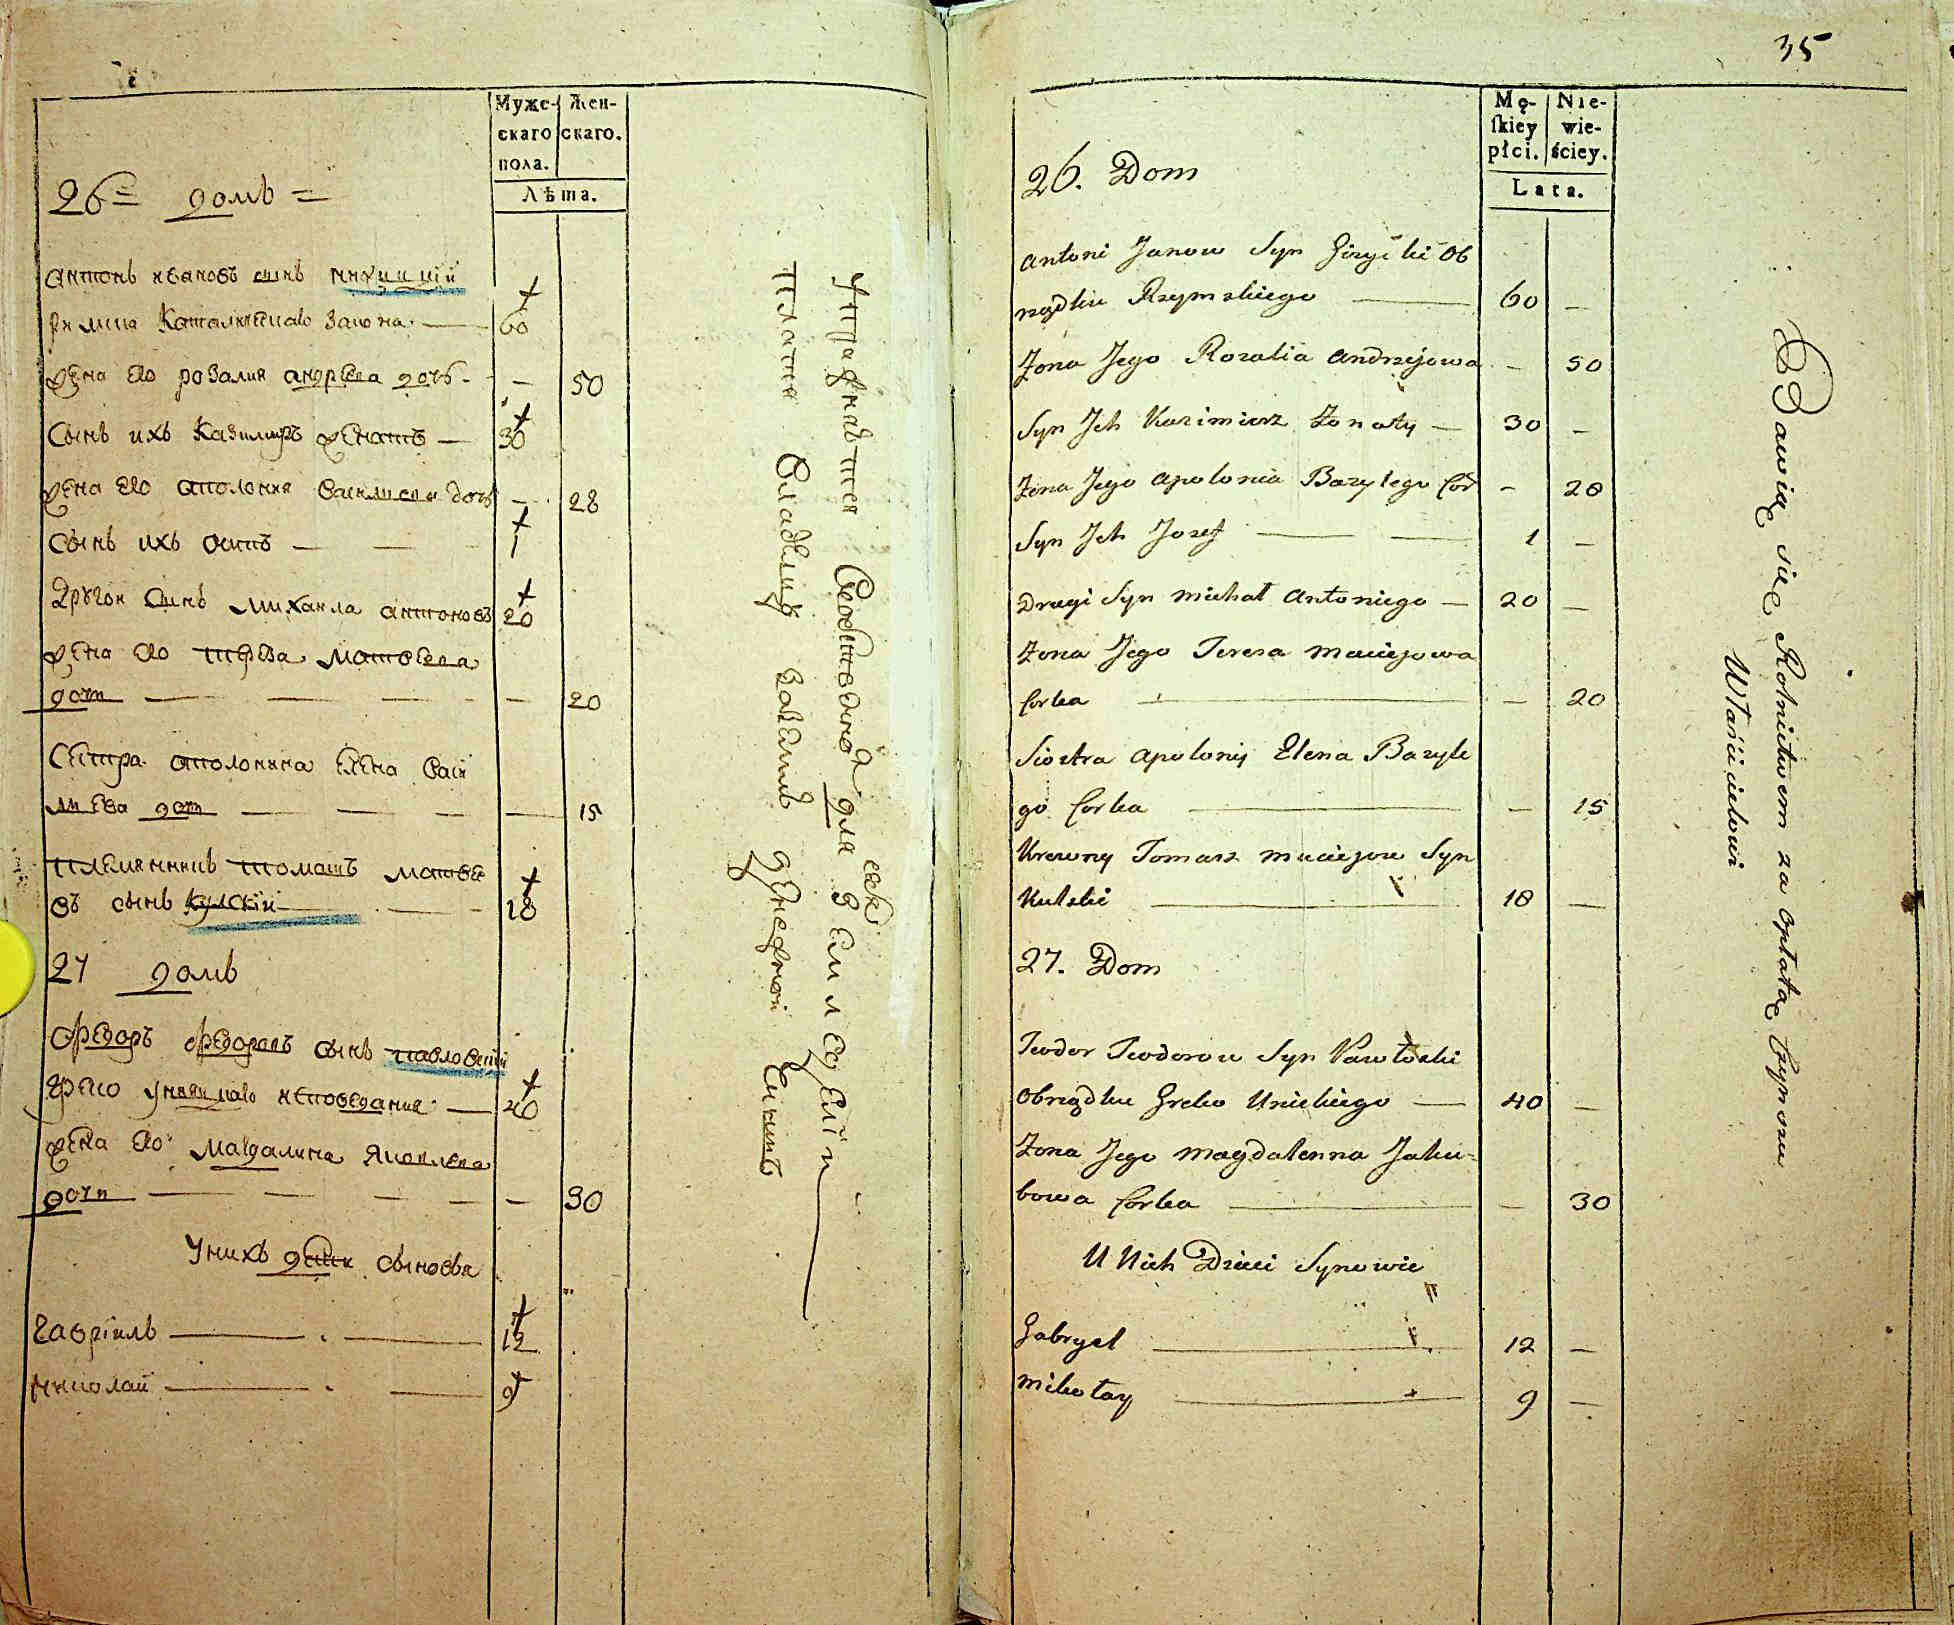 Муже-
скаго
пола.
Жен-
скаго.
Лѣта.
26 домъ
Антонъ Ивановъ сынъ
Римско Католическаго Закона — 60
Жена Его розалия андреева дочь — 50
Сынъ ихъ Казимиръ женатъ — 30
Жена Его аполония Василиева дочь — 28
Сынъ ихъ осипъ — 1
Другои сынъ михаила антоновъ 20
Жена Его тереза матвеева
дочь — 20
Сестра аполонина Елена Васи
лиева дочь — 15
племянникъ томашъ матвее
въ сынъ Кулский — 18
27 домъ
Федоръ Федоровъ сынъ павловский
Греко униицкаго исповедания — 40
Жена Его магдалина Яковлева
дочь — 30
У нихъ дети сыновья
Гавриилъ — 12
Николай — 9
для
земледелии
платя владельцу денежной чиншъ
35
Mę-
ſkiey
płci.
Nie-
wie-
ściey.
Lata.
26. Dom
Antoni Janow Syn Giżycki Ob
rządku Rzymskiego — 60 —
Żona Jego Rozalia Andrzejowa — 50
Syn Jch Kazimierz Żonaty — 30 —
Żona Jego Apolonia Bazylego Cor — 28
Syn Jch Jozef — 1 —
Drugi Syn Michał Antoniego — 20 —
Żona Jego Teresa Maciejowa
Corka — 20
Siostra Apolonij Elena Bazyle
go Corka — 15
Krewny Tomasz Maciejow Syn
Kulski — 18 —
27. Dom
Teodor Teodorow Syn Pawłoski
Obrządku Greko Unickiego — 40 —
Żona Jego Magdalenna Jaku-
bowa Corka — 30
U Nich Dzieci Synowie
Gabryel — 12 —
Mikołay — 9 —
Bawią się Rolnictwem za opłatą Czynszu
Właścicielowi